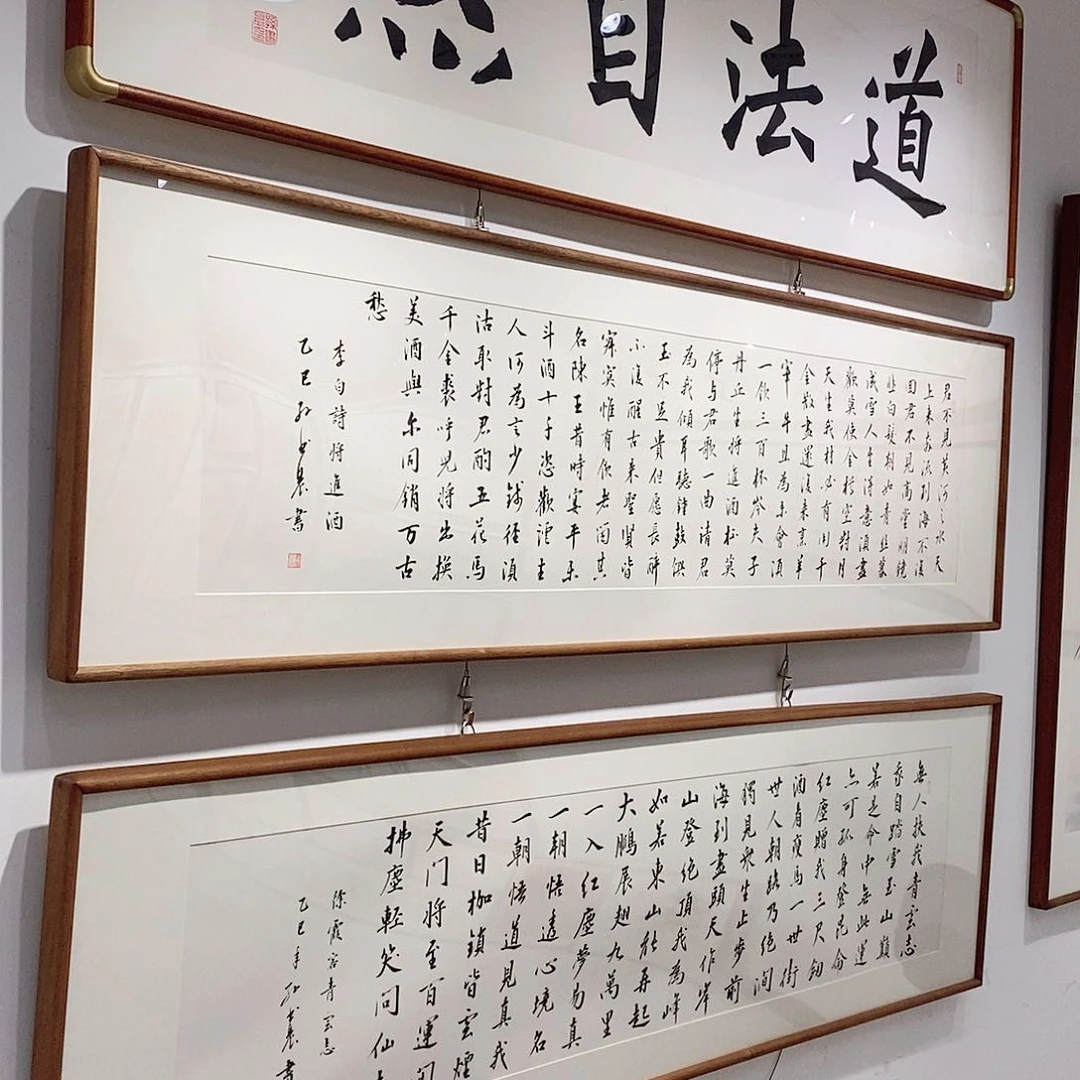 道法自然
君不見黃河之水天
上来奔流到海不復
回君不見高堂明鏡
悲白髮朝如青丝暮
成雪人生得意須盡
歡莫使金樽空對月
天生我材必有用千
金散盡還復来烹羊
宰牛且為乐會須
一飲三百杯岑夫子
丹丘生將進酒杯莫
停与君歌一曲请君
為我傾耳聽鐘鼓饌
玉不足貴但愿長醉
不復醒古来聖賢皆
寂寞惟有飲者留其
名陳王昔時宴平乐
斗酒十千恣歡謔主
人何為言少錢徑須
沽取對君酌五花馬
千金裘呼児將出換
美酒與尔同销万古
愁
李白詩將進酒
乙巳書
無人扶我青雲志
我自踏雪玉山巔
若是命中無此運
亦可孤身登昆侖
红塵贈我三尺劍
酒肴瘦馬一世街
世人朝路乃绝涧
獨見眾生止步前
海到盡頭天作岸
山登绝頂我為峰
如若東山能再起
大鵬展翅九萬里
一入红塵夢易真
一朝悟透心境名
一朝悟道見真我
昔日枷鎖皆雲煙
天门將至百運開
拂塵輕笑問仙
徐霞客青雲志
乙巳年書